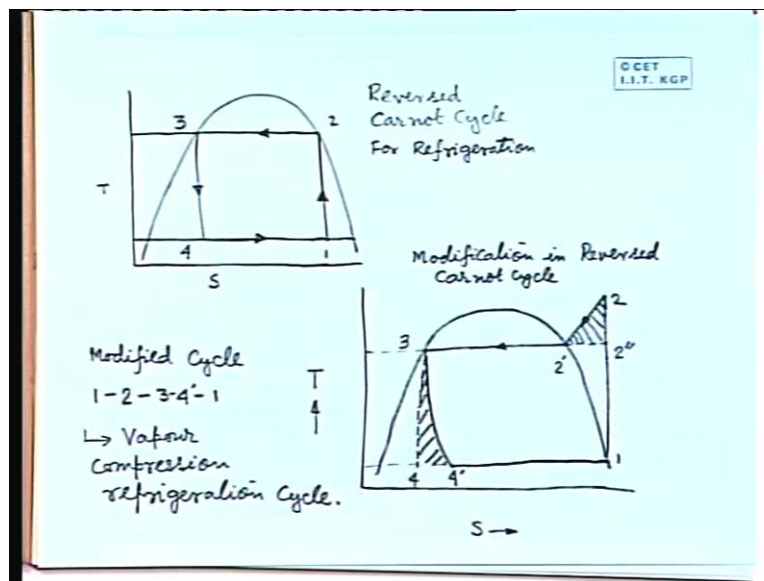 © CET
I.I.T. KGP
Reversed
Carnot Cycle
For Refrigeration
3
2
T
4
1
S
Modification in Reversed
Carnot Cycle
2
3
2'
2"
T
1
4
4'
S →
Modified Cycle
1-2-3-4'-1
↳ Vapour
compression
refrigeration Cycle.